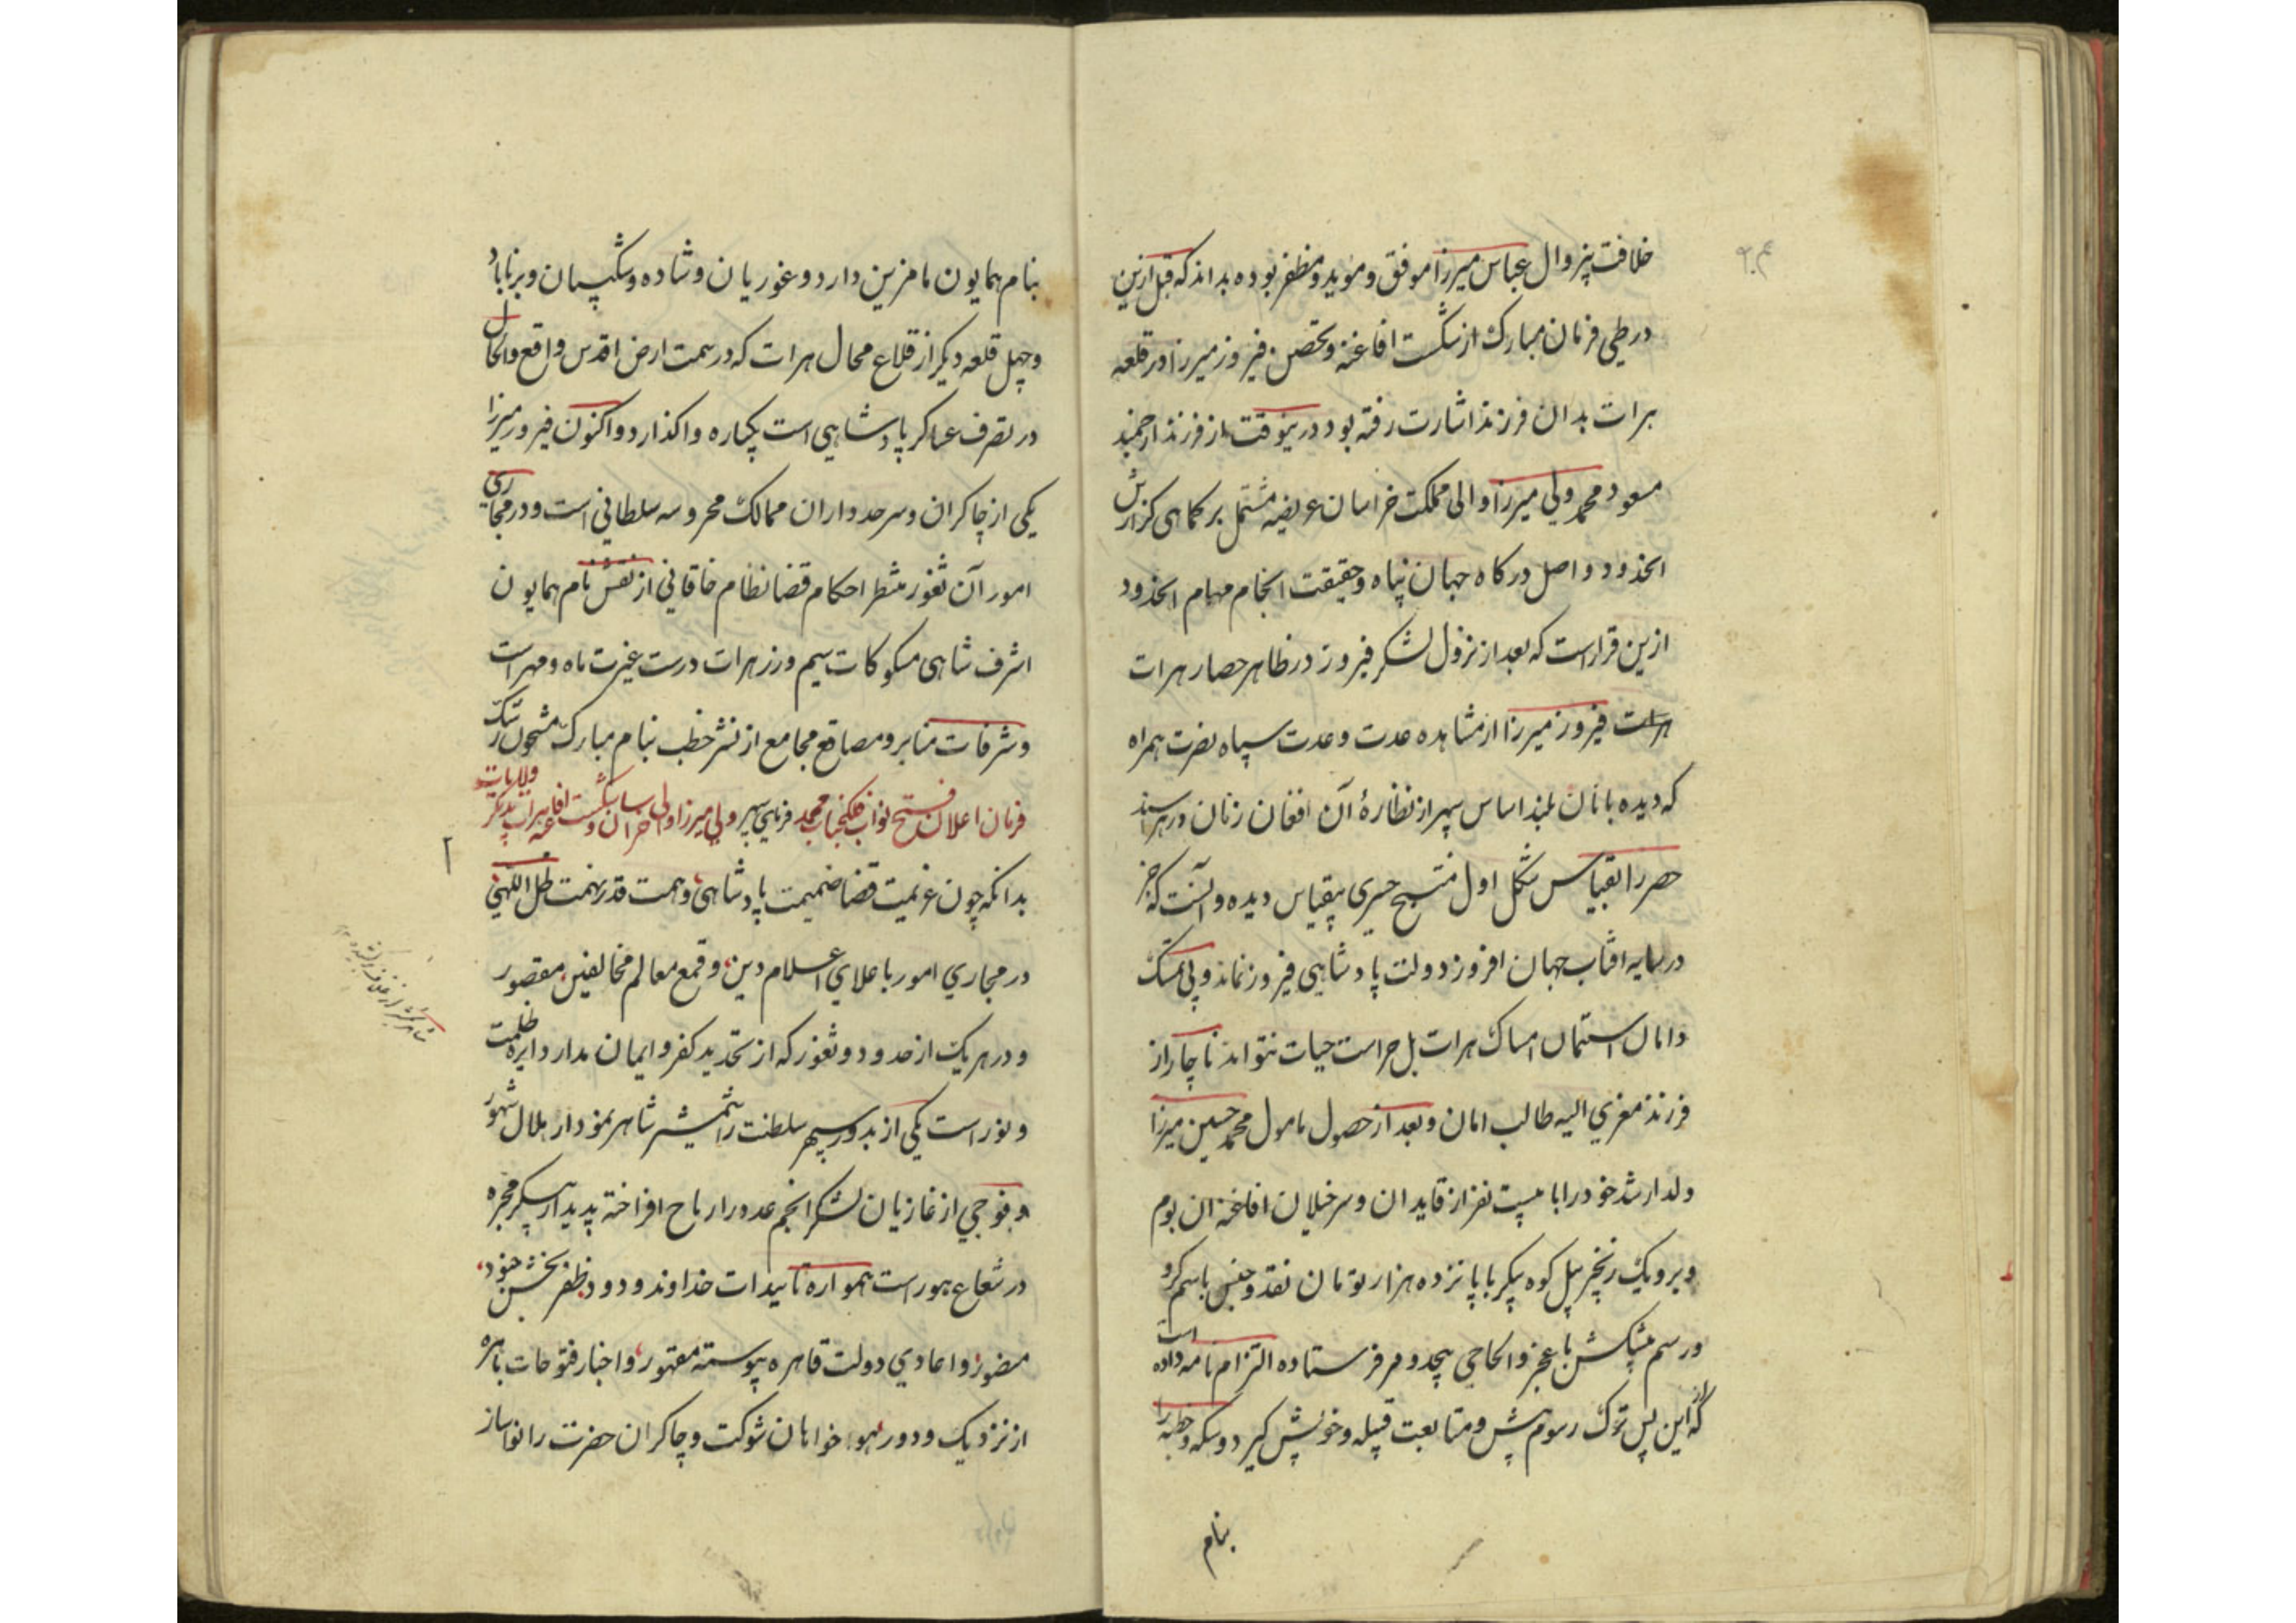 خلافت بیزوال عباس میرزا موفق و موید و مظفر بوده بداند که قبل ازین
در طی فرمان مبارک از شکست افاغنه و تحصن فیروز میرزا در قلعه
هرات بدان فرزند اشارت رفته بود درینوقت از فرزند ارجمند
مسعود محمد ولی میرزا والی مملکت خراسان عریضه مشتمل بر کماهی گزارش
انحدود واصل درگاه جهان پناه و حقیقت انجام مهام انحدود
ازین قرار است که بعد از نزول لشکر فیروز در ظاهر حصار هرات
هرات فیروز میرزا از مشاهده عدت و عدت سپاه نصرت همراه
که دیده بانان بلند اساس سپهر از نظارهٔ آن افغان زنان در هراسند
حصر را بقیاس شکل اول منتج حسری بیقیاس دیده و دانست که جز
در سایه افتاب جهان افروز دولت پادشاهی فیروز نماند و بی تمسک
دامان استیمان امساک هرات بل حراست حیات نتواند ناچار از
فرزند معزی الیه طالب امان و بعد از حصول مامول محمد حسین میرزا
ولد ارشد خود را با بیست نفر از قایدان و سرخیلان افاغنه ان بوم
و بر و یک زنجیر پیل کوه پیکر با پانزده هزار تومان نقد و جنس باسم گرو
و رسم پیشکش با عجز و الحاحی بیحد و مر فرستاده التزام نامه داده است
که از این پس ترک رسوم پیش و متابعت قبیله و خویش گیرد و سکه و خطبه را
بنام
بنام همایون ما مزین دارد و غوریان و شاده و شکیبان و برناباد
و چهل قلعه دیگر از قلاع محال هرات که در سمت ارض اقدس واقع و الحال
در تصرف عساکر پادشاهی است یکباره واگذارد و اکنون فیروز میرزا
یکی از چاکران و سرحدداران ممالک محروسه سلطانی است و در مجاری
امور آن ثغور منتظر احکام قضا نظام خاقانی از نقش نام همایون
اشرف شاهی مسکوکات سیم و زر هرات درست غیرت ماه و مهر است
و شرفات منابر و مصاقع مجامع از نشر خطب بنام مبارک مشحون رشک
فرمان اعلان فتح نواب فلکجناب محمد ولی میرزا والی خراسان و شکست افاغنه
بدانکه چون عزیمت قضا ضمیمت پادشاهی و همت قدر نهمت ظل اللهی
در مجاری امور باعلای اعلام دین و قمع معالم مخالفین مقصور
و در هر یک از حدود و ثغور که از تحدید کفر و ایمان مدار دایره ظلمت
و نور است یکی از بدور سپهر سلطنت را شمشیر شاهر نمودار هلال شهور
و فوجی از غازیان لشکر انجم عده را رماح افراخته پدیدار پیکر مجره
در شعاع هور است همواره تاییدات خداوند ودود ظفر بخش جنود
منصور و اعادی دولت قاهره پیوسته مقهور و اخبار فتوحات باهره
از نزدیک و دور هوا خواهان شوکت و چاکران حضرت را نواساز